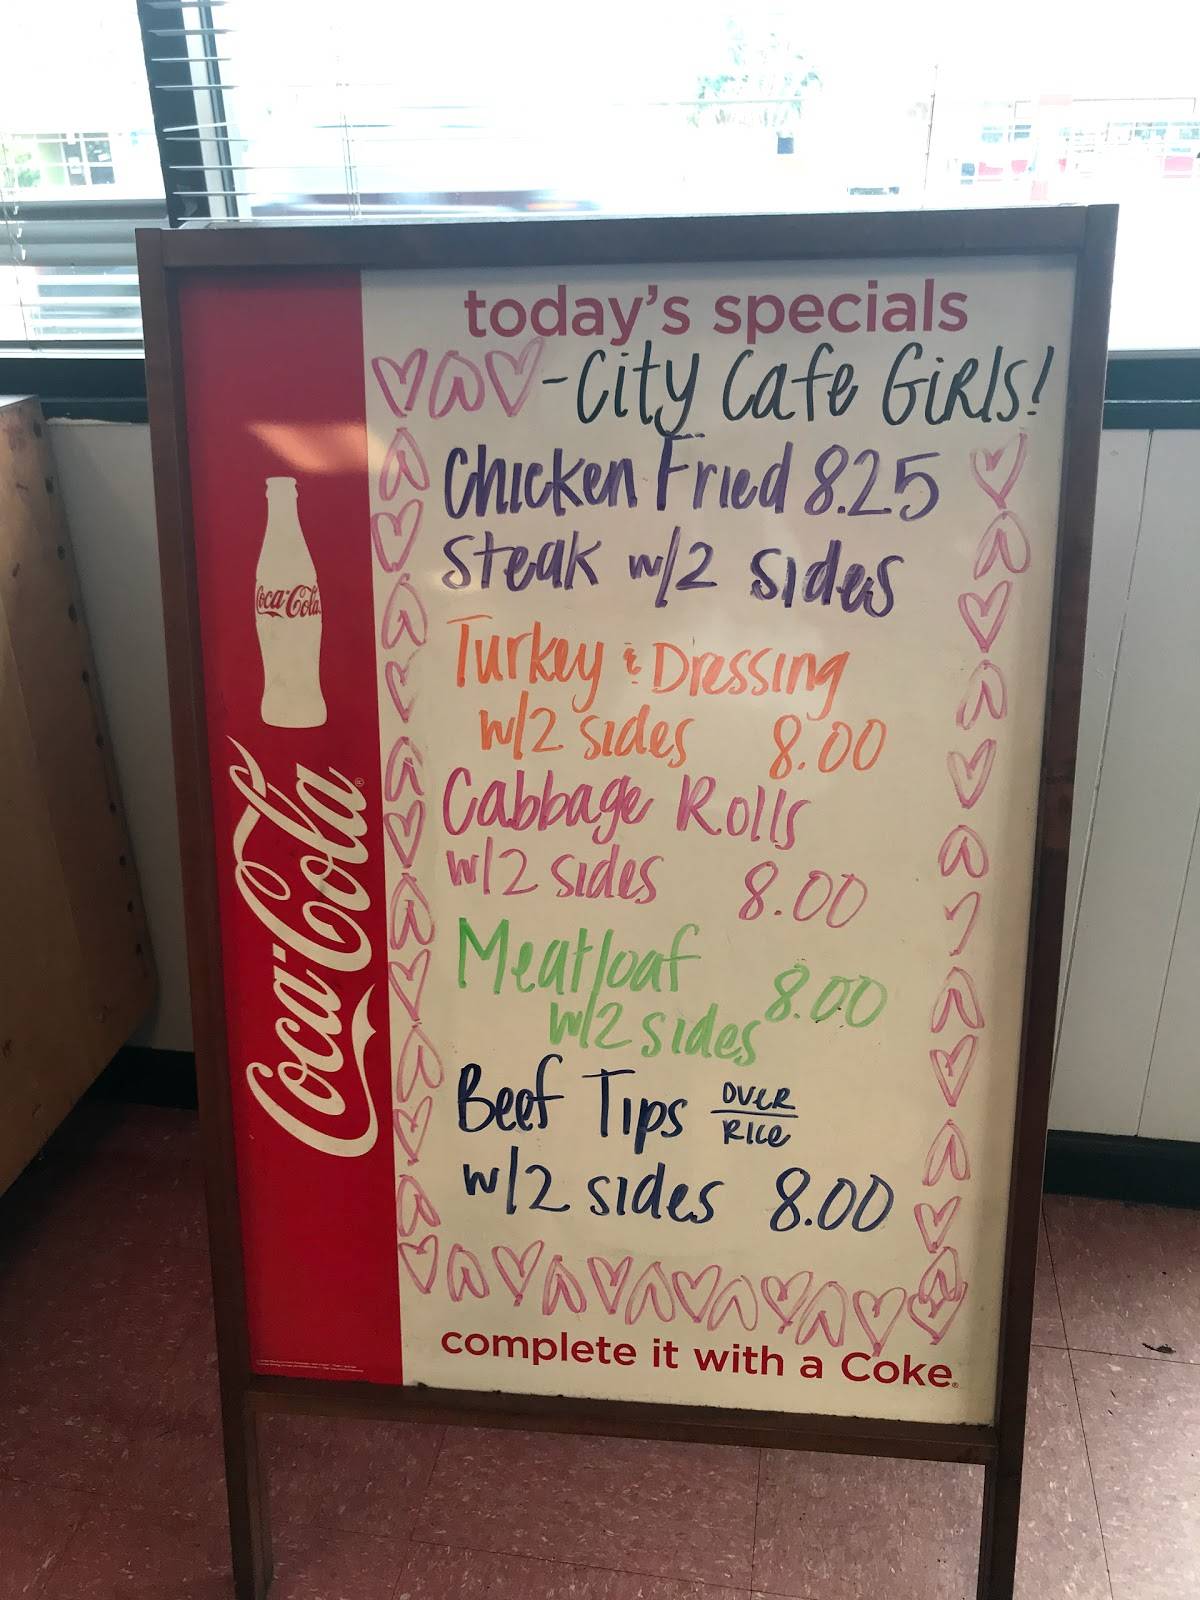 today's specials
-City Cafe GiRls!
Chicken Fried 8.25
Steak w/2 sides
Turkey & Dressing
w/2 sides 8.00
Cabbage Rolls
w/2 sides 8.00
Meatloaf 8.00
w/2 sides
Beef Tips OVER RICE
w/2 sides 8.00
complete it with a Coke®
Coca-Cola
Coca-Cola®